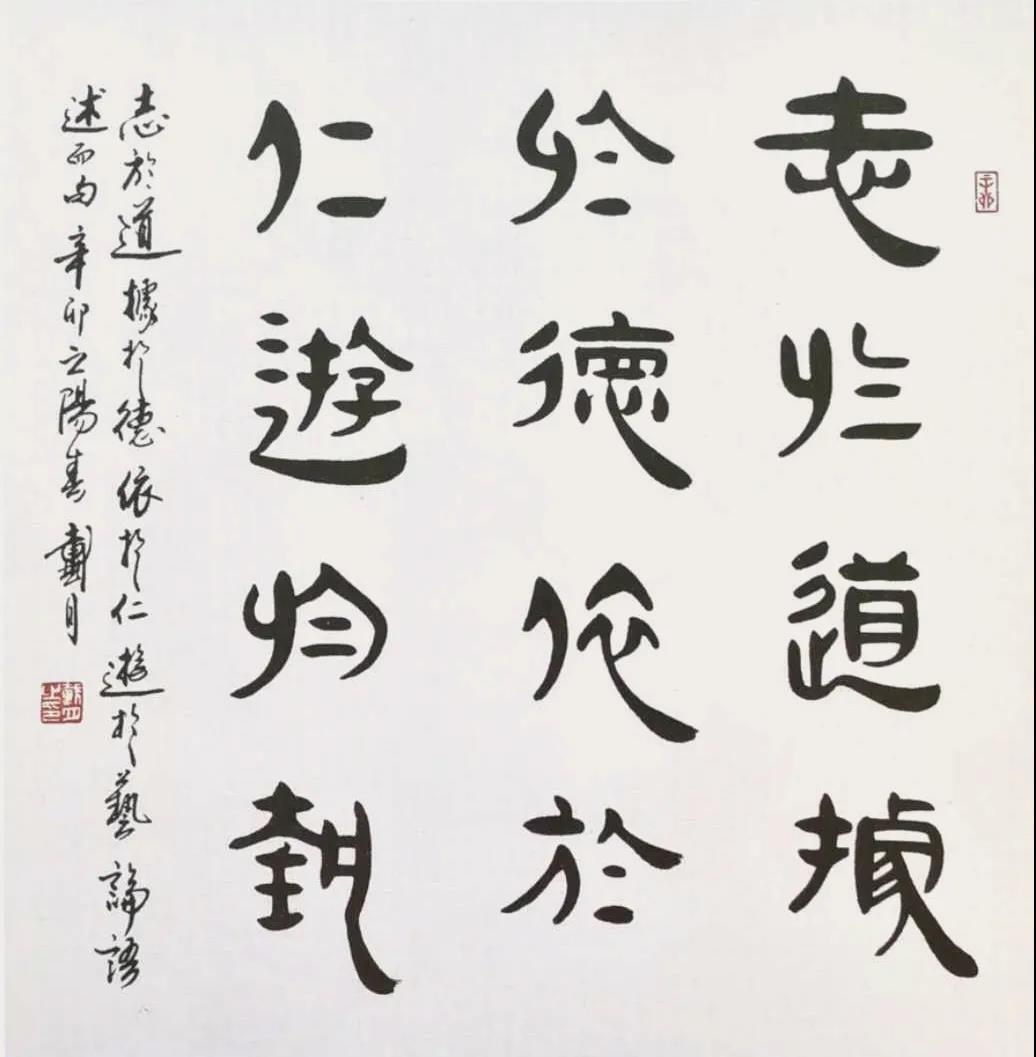 志於道據
於德依於
仁遊於埶
志於道據於德依於仁遊於藝論語
述而句辛卯之陽春戴月
辛卯